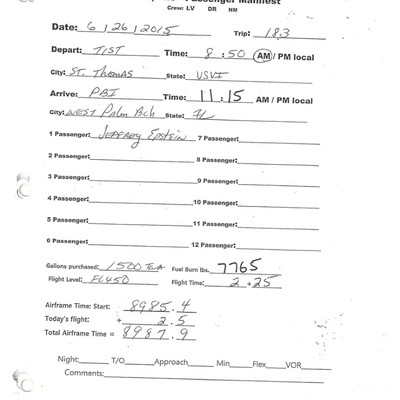 Passenger Manifest
Crew: LV DR NM
Date: 6 / 26 / 2015 Trip: 183
Depart: TIST Time: 8 : 50 AM / PM local
City: St. Thomas State: USVI
Arrive: PBI Time: 11 : 15 AM / PM local
City: West Palm Bch State: FL
1 Passenger: Jeffrey Epstein 7 Passenger:
2 Passenger: 8 Passenger:
3 Passenger: 9 Passenger:
4 Passenger: 10 Passenger:
5 Passenger: 11 Passenger:
6 Passenger: 12 Passenger:
Gallons purchased: 1500 Fuel Burn lbs. 7765
Flight Level: FL450 Flight Time: 2 + 25
Airframe Time: Start: 8985.4
Today's flight: + 2.5
Total Airframe Time = 8987.9
Night: T/O Approach Min Flex VOR
Comments: